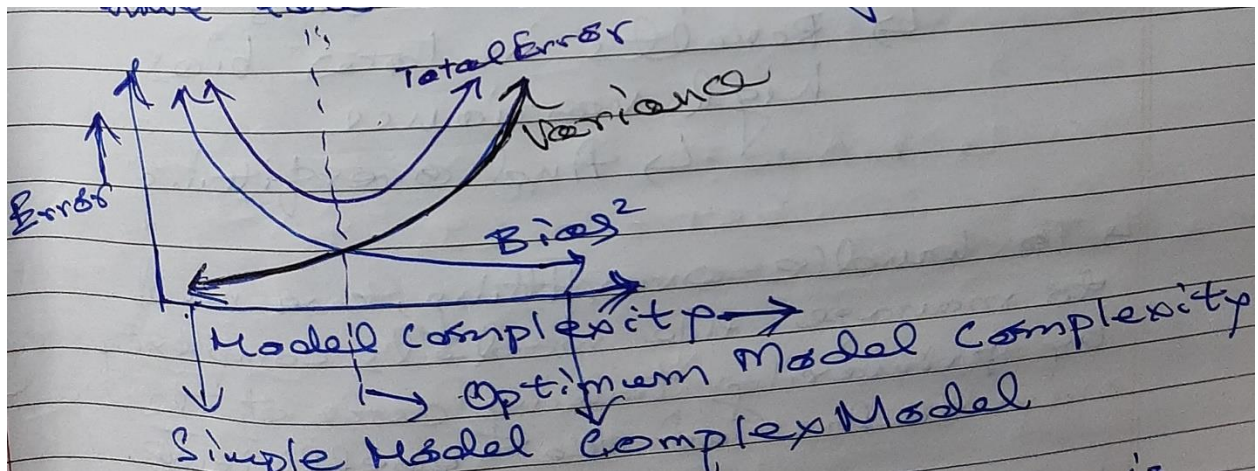 Total Error
Variance
Error
Bias²
Model Complexity
Optimum Model Complexity
Simple Model Complex Model